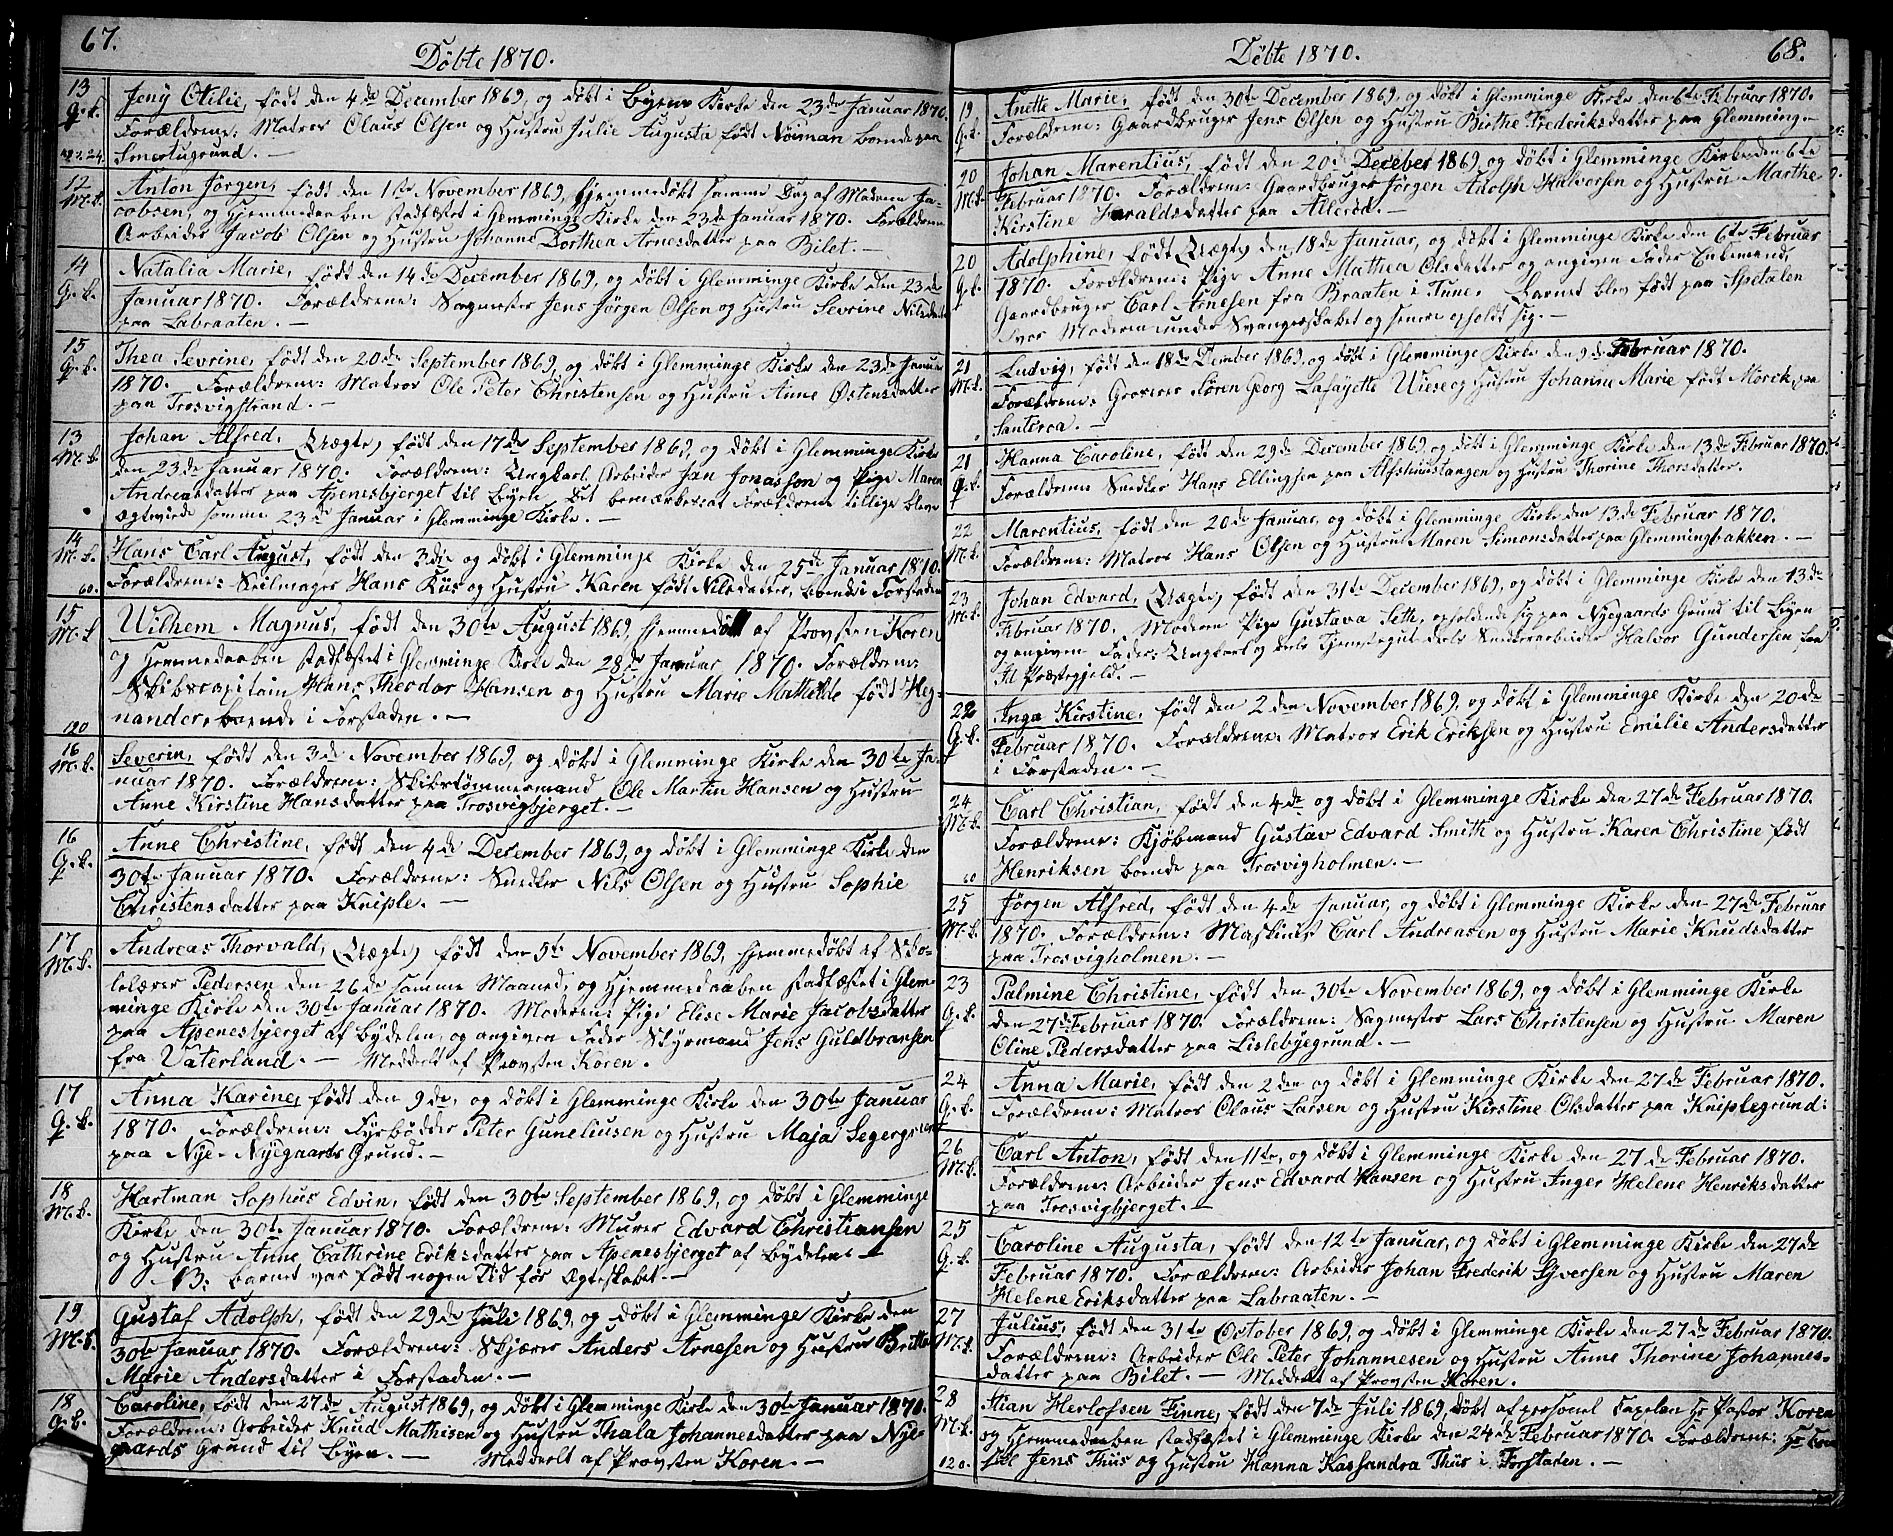 67.
Döbte 1870.
13 Jeny Otilie, födt den 4de December 1869, og döbt i Byens Kirke den 23de Januar 1870.
G.k. Forældrene: Matros Claus Olsen og Hustru Julie Augusta födt Nöiman boende paa
Smertugrund. —
12 Anton Jörgen, födt den 1ste November 1869, hjemmedöbt samme Dag af Madame Ja-
M.k. cobsen, og Hjemmedaaben stadfæstet i Glemminge Kirke den 23de Januar 1870. Forældrene
Arbeider Jacob Olsen og Hustru Johanne Dorthea Arnesdatter paa Bilet. —
14 Natalia Marie, födt den 14de December 1869, og döbt i Glemminge Kirke den 23de
G.k. Januar 1870. Forældrene: Sagmester Jens Jörgen Olsen og Hustru Severine Nilsdatter
paa Labraaten. —
15 Thea Sevrine, födt den 20de September 1869, og döbt i Glemminge Kirke den 23de Januar
G.k. 1870. Forældrene: Matros Ole Peter Christensen og Hustru Anne Østensdatter
paa Trosvigstrand. —
13 Johan Alfred, (Uægte) födt den 17de September 1869, og döbt i Glemminge Kirke
M.k. den 23de Januar 1870. Forældrene: Ungkarl, Arbeider Jan Jonasson og Pige Maren
Andreasdatter paa Apenesbjerget til Byen. Det bemærkes at Forældrene tillige bleve
ægteviede samme 23de Januar i Glemminge Kirke. —
14 Hans Carl August, födt den 3die og döbt i Glemminge Kirke den 25de Januar 1870.
M.k. 60. Forældrene: Seilmager Hans Riis og Hustru Karen födt Nilsdatter, boende i Forstaden
15 Wilhem Magnus, födt den 30te August 1869, hjemmedöbt af Provsten Koren
M.k. og Hjemmedaaben stadfæstet i Glemminge Kirke den 28de Januar 1870. Forældrene:
Skibscapitain Hans Theodor Hansen og Hustru Marie Mathilde födt Heg-
120 nander, boende i Forstaden. —
16 Severin, födt den 3de November 1869, og döbt i Glemminge Kirke den 30te Ja-
M.k. nuar 1870. Forældrene: Skibstømmermand Ole Martin Hansen og Hustru
Anne Kirstine Hansdatter paa Trosvigbjerget. —
16 Anne Christine, födt den 4de December 1869, og döbt i Glemminge Kirke den
G.k. 30te Januar 1870. Forældrene: Snedker Nils Olsen og Hustru Sophie
Christensdatter paa Kniple. —
17 Andreas Thorvald, (Uægte) födt den 5te November 1869, hjemmedöbt af Sko-
M.k. lelærer Pedersen den 26de samme Maaned, og Hjemmedaaben stadfæstet i Glem-
minge Kirke den 30te Januar 1870. Moderen: Pige Elise Marie Jacobsdatter
paa Apenesbjerget af Bydelen, og angiven Fader Styrmand Jens Guldbransen
fra Vaterland. — Meddelt af Provsten Koren.
17 Anna Karine, födt den 9de, og döbt i Glemminge Kirke den 30te Januar
G.k. 1870. Forældrene: Fyrbødder Peter Guneliusen og Hustru Maja
paa Nye-Nyegaards Grund. —
18 Hartman Sophus Edvin, födt den 30te September 1869, og döbt i Glemminge
M.k. Kirke den 30te Januar 1870. Forældrene: Murer Edvard Christiansen
og Hustru Anne Cathrine Eriksdatter paa Apenesbjerget af Bydelen —
NB: barnet var födt nogen Tid før Ægteskabet. —
19 Gustaf Adolph, födt den 29de Juli 1869, og döbt i Glemminge Kirke den
M.k. 30te Januar 1870. Forældrene: Skjærer Anders Arnesen og Hustru Britta
Marie Andersdatter i Forstaden. —
18 Caroline, födt den 27de August 1869, og döbt i Glemminge Kirke den 30te Januar 1870.
G.k. Forældrene: Arbeider Knud Mathisen og Hustru Thala Johannesdatter paa Nye-
gaards Grund til Byen. — Meddelt af Provsten Koren. —
Döbte 1870.
68.
19 Anette Marie, födt den 30te December 1869, og döbt i Glemminge Kirke den 6te Februar 1870.
G.k. Forældrene: Gaardbruger Jens Olsen og Hustru Birthe Frederiksdatter paa Glemminge
20 Johan Marentius, födt den 20de Deceber 1869, og döbt i Glemminge Kirke den 6te
M.k. Februar 1870. Forældrene: Gaardbruger Jörgen Adolph Halvorsen og Hustru Marthe
Kirstine Haraldsdatter paa Alleröd. —
20 Adolphine, födt (Uægte) den 18de Januar, og döbt i Glemminge Kirke den 6te Februar
G.k. 1870. Forældrene: Pige Anne Mathea Olsdatter og angiven Fader Enkemand,
Gaardbruger Carl Arnesen fra Braaten i Tune. Barnet blev födt paa Spetalen
hvor Moderen under Svangerskabet og senere opholdt sig. —
21 Ludvig, födt den 18de Dember 1869, og döbt i Glemminge Kirke den 9de Februar 1870.
M.k. Forældrene: Groserer Sören Georg Lafayette Wiese og Hustru Johanne Marie födt Mörck paa
Santerea. —
21 Hanna Caroline, födt den 29de December 1869, og döbt i Glemminge Kirke den 13de Februar 1870.
G.k. Forældrene Snedker Hans Ellingsen paa og Hustru Thorine Thorsdatter.
22 Marentius, födt den 20de Januar, og döbt i Glemminge Kirke den 13de Februar 1870.
M.k. Forældrene: Matros Hans Olsen og Hustru Maren Simonsdatter paa Glemmingbakken. —
23 Johan Edvard, (Uægte) födt den 31te December 1869, og döbt i Glemminge Kirke den 13de
M.k. Februar 1870. Moderen Pige Gustava Seth, opholdende sig paa Nyegaards Grund til Byen
og angiven Fader: Ungkarl og dels Tjenestegut dels Snedkerarbeider Halvor Gundersen fra
Id Præstegjeld. —
22 Inga Kirstine, födt den 2den November 1869, og döbt i Glemminge Kirke den 20de
G.k. Februar 1870. Forældrene: Matros Erik Eriksen og Hustru Emilie Andersdatter
i Forstaden. —
24 Carl Christian, födt den 4de og döbt i Glemminge Kirke den 27de Februar 1870.
M.k. Forældrene: Kjöbmand Gustav Edvard Smith og Hustru Karen Christine födt
60 Henriksen boende paa Trosvigholmen. —
25 Jörgen Alfred, födt den 4de Januar, og döbt i Glemminge Kirke den 27de Februar
M.k. 1870. Forældrene: Maskinist Carl Andreasen og Hustru Marie Knudsdatter
paa Trosvigholmen. —
23 Palmine Christine, födt den 30te November 1869, og döbt i Glemminge Kirke
G.k. den 27de Februar 1870. Forældrene: Sagmester Lars Christensen og Hustru Maren
Oline Pedersdatter paa Lislebyegrund. —
24 Anna Marie, födt den 2den og döbt i Glemminge Kirke den 27de Februar 1870.
G.k. Forældrene: Matros Claus Larsen og Hustru Kirstine Olsdatter paa Kniplegrund:
26 Carl Anton, födt den 11te, og döbt i Glemminge Kirke den 27de Februar 1870.
M.k. Forældrene: Arbeider Jens Edvard Hansen og Hustru Inger Helene Henriksdatter
paa Trosvigbjerget. —
25 Caroline Augusta, födt den 12te Januar, og döbt i Glemminge Kirke den 27de
G.k. Februar 1870. Forældrene: Arbeider Johan Frederik Syversen og Hustru Maren
Helene Eriksdatter paa Labraaten. —
27 Julius, födt den 31te October 1869, og döbt i Glemminge Kirke den 27de Februar 1870.
M.k. Forældrene: Arbeider Ole Peter Johannesen og Hustru Anne Thorine Johannes-
datter paa Bilet. — Meddelt af Provsten Koren.
28 Stian Herlofsen Finne, födt den 7de Juli 1869, döbt af personel Capelan Hr Pastor Koren
M.k. og Hjemmedaaben stadfæstet i Glemminge Kirke den 24de Februar 1870. Forældrene: Hr
120. Jens Thiis og Hustru Hanna Kassandra Thiis i Forstaden. —